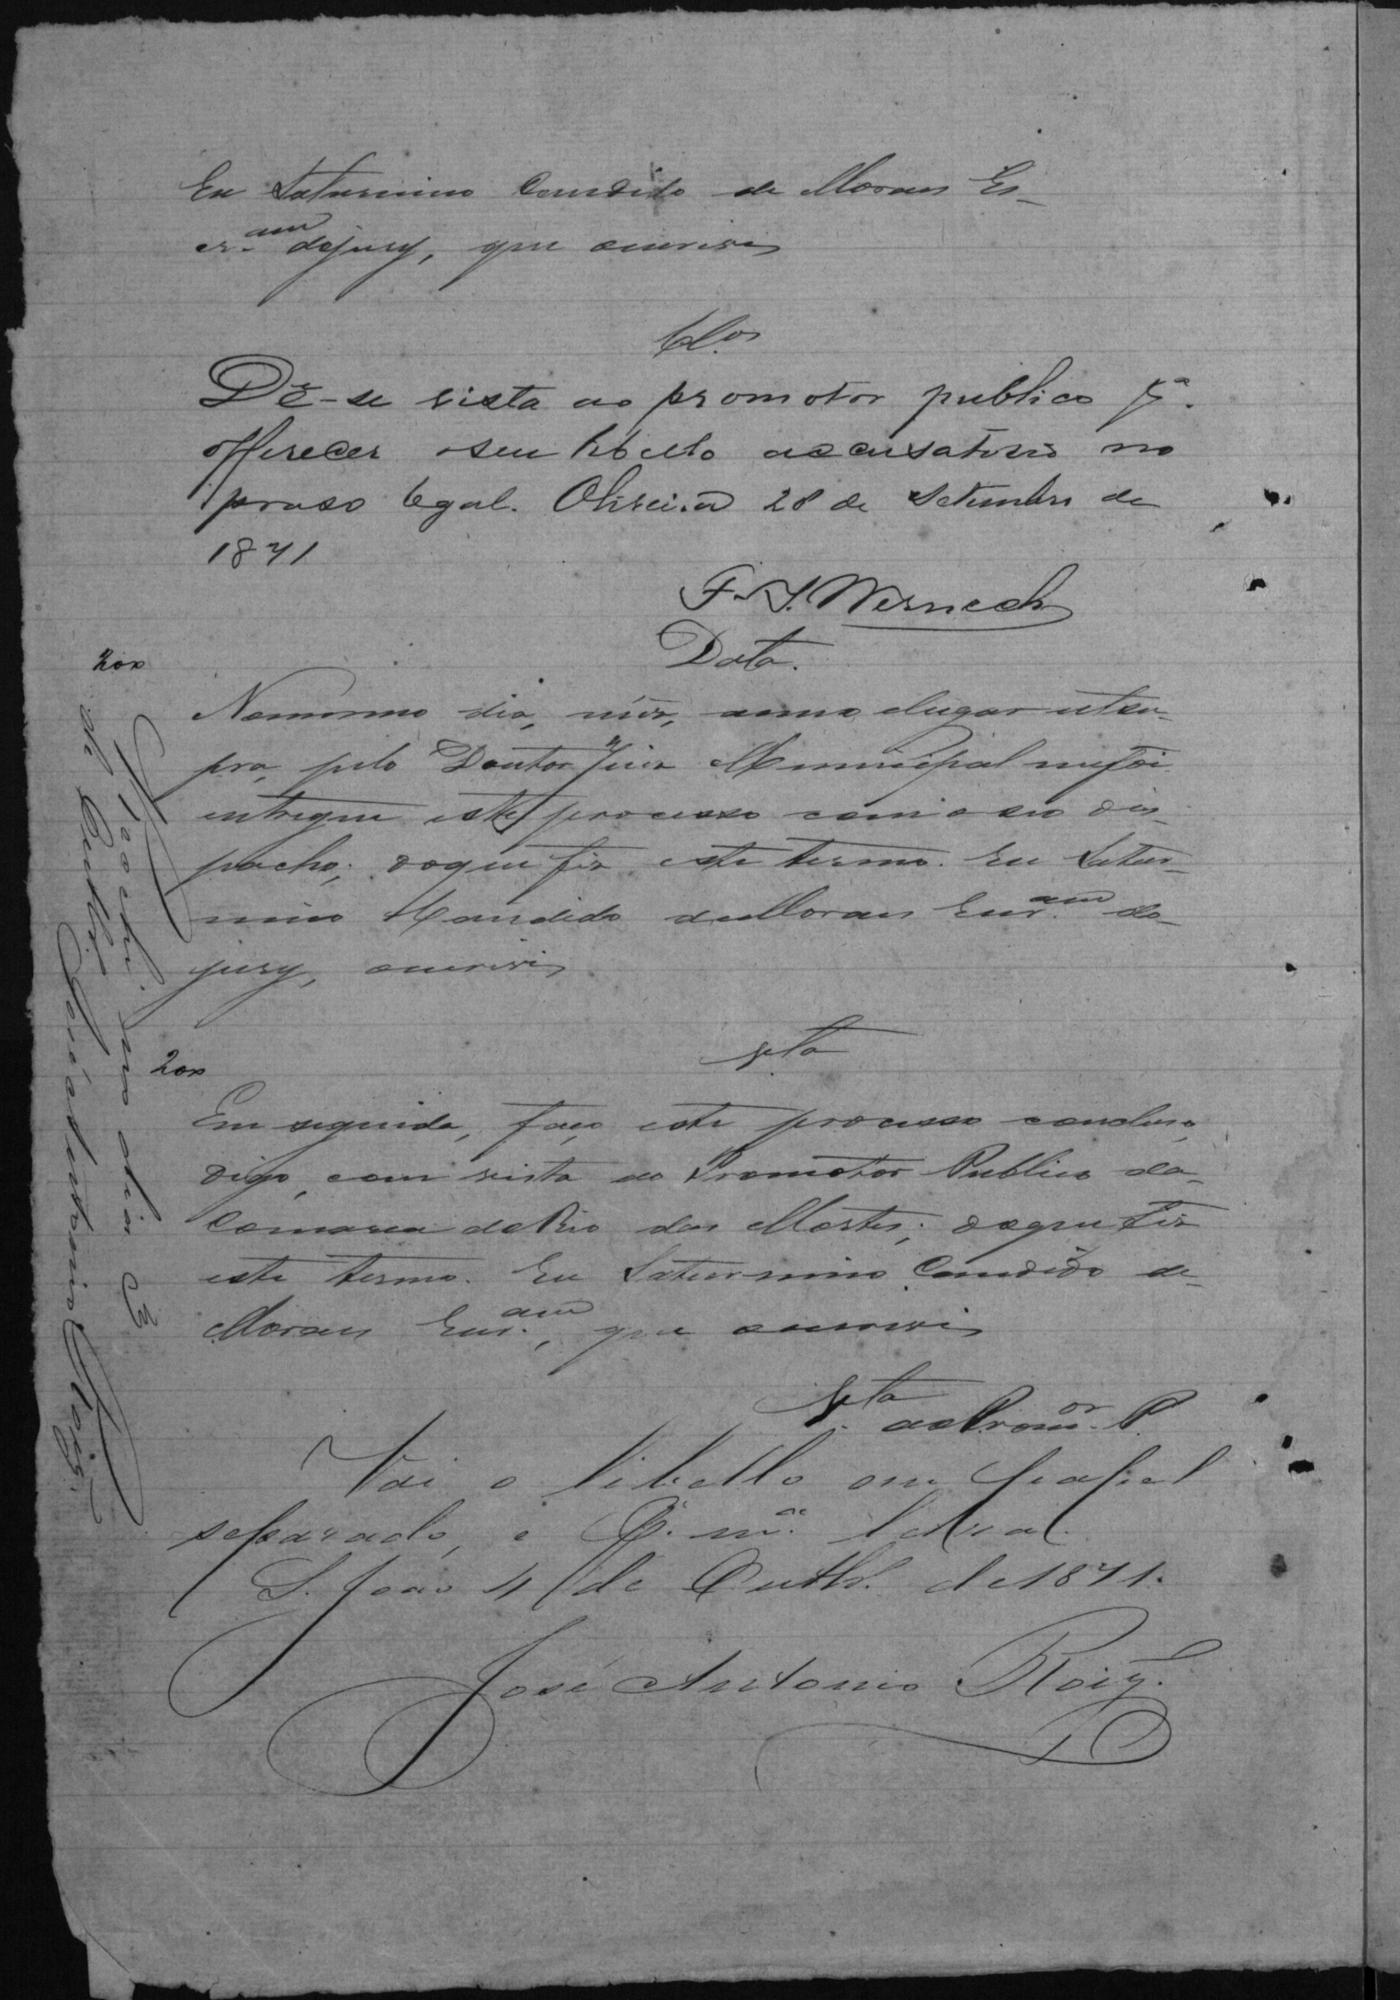 Eu Saturnino Candido de Moraes Es-
cr.am dojury, que escrevi
Cl.os
Dê-se vista ao promotor publico p.a
offerecer o seu libello accusatorio no
praso legal. Oliveira 28 de Setembro de
1871
F. J. Werneck
Data.
200
Nomesmo dia, mês, anno e lugar utsu-
pra, pelo Doutor Juiz Municipal mefoi
entregue este processo com o seu des-
pacho; doque fiz este termo. Eu Satur-
nino Candido deMoraes Escr.am do
jury, escrevi
V.ta
200
Em seguida, faço este processo concluso,
digo, com vista ao Promotor Publico da
Comarca doRio das Mortes; doque fiz
este termo. Eu Saturnino Candido de
Moraes Escr.am, que escrevi
V.ta aoProm.or P.
Vai o libello em papel
separado, e
S. João 4 de Outbr.o de 1871.
José Antonio Roiz.
no dia 3
de Outbr.o José Antonio Roiz.